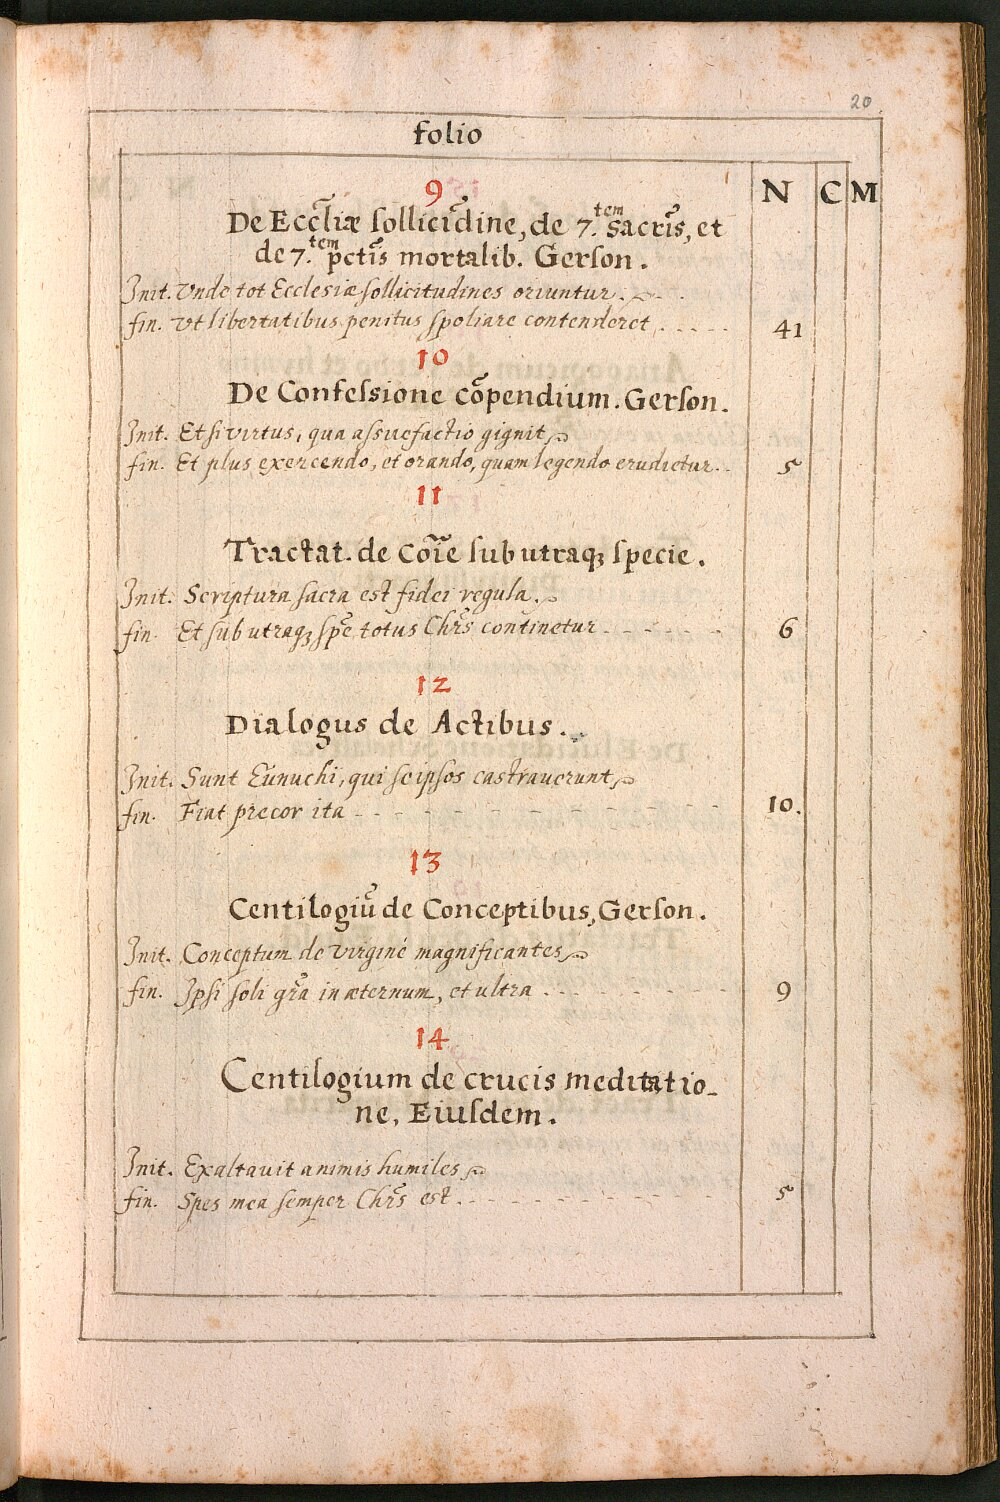 20
folio
N C M
9
De Eccl̃iæ ſollicĩdine, de 7.tem sacrĩs, et
de 7.tem pctĩs mortalib. Gerſon.
Init. Vnde tot Ecclesiæ ſollicitudines oriuntur.
fin. vt libertatibus penitus ſpoliare contenderet 41
10
De Confeſsione cõpendium. Gerſon.
Init. Etſi virtus, qua aſsuefactio gignit,
fin. Et plus exercendo, et orando, quam legendo erudietur. 5
11
Tractat. de Cõie ſub utraqꝫ ſpecie.
Init. Scriptura ſacra est fidei regula.
fin. Et ſub utraqꝫ ſpẽ totus Chr̃s continetur 6
12
Dialogus de Actibus.
Init. Sunt Eunuchi, qui ſeipſos castrauerunt,
fin. Fiat precor ita 10.
13
Centilogiũ de Conceptibus, Gerſon.
Init. Conceptum de virginé magnificantes,
fin. Ipſi ſoli gr̃a in æternum, et ultra 9
14
Centilogium de crucis meditatio-
ne, Eiuſdem.
Init. Exaltauit animis humiles,
fin. Spes mea ſemper Chr̃s est. 5